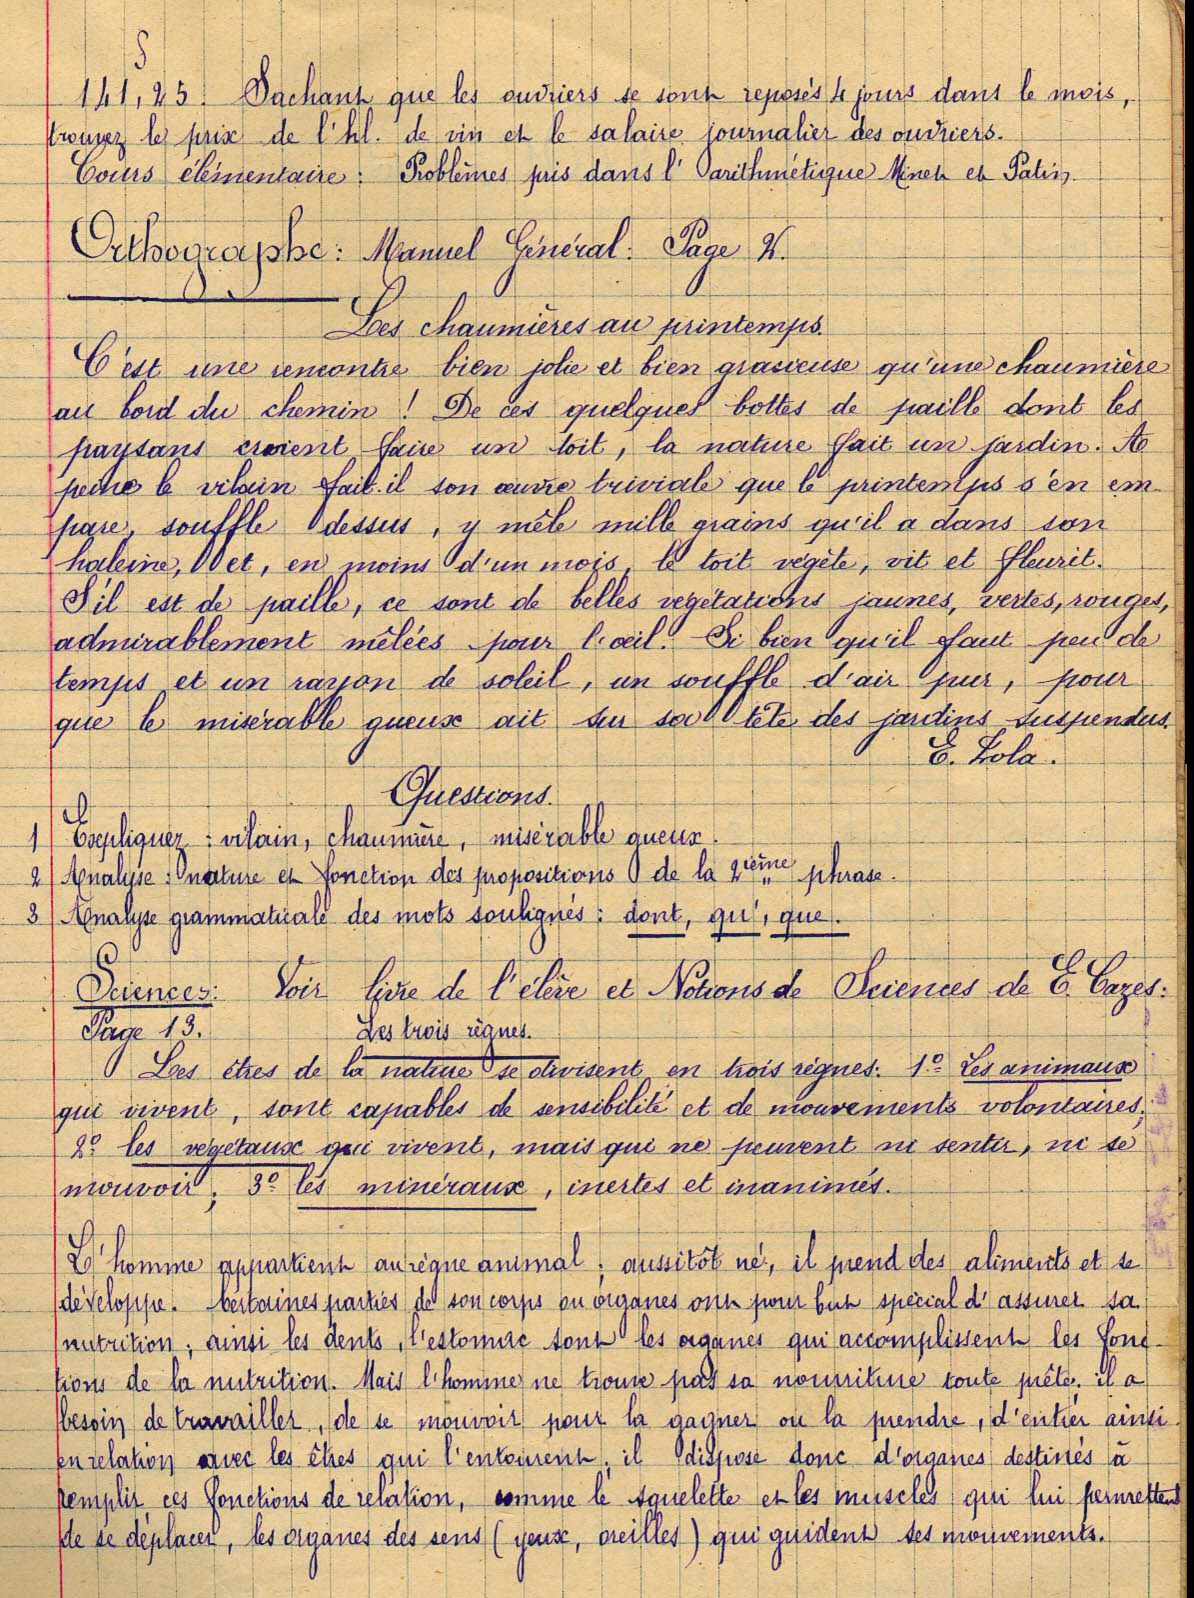 §
141,25. Sachant que les ouvriers se sont reposés 4 jours dans le mois,
trouvez le prix de l'hl. de vin et le salaire journalier des ouvriers.
Cours élémentaire : Problèmes pris dans l'arithmétique Minet et Patin
Orthographe : Manuel Général : Page
Les chaumières au printemps.
C'est une rencontre bien jolie et bien gracieuse qu'une chaumière
au bord du chemin ! De ces quelques bottes de paille dont les
paysans croient faire un toit, la nature fait un jardin. A
peine le vilain fait-il son œuvre triviale que le printemps s'en em-
pare, souffle dessus, y mêle mille grains qu'il a dans son
haleine, et, en moins d'un mois, le toit végète, vit et fleurit.
S'il est de paille, ce sont de belles végétations jaunes, vertes, rouges,
admirablement mêlées pour l'œil. Si bien qu'il faut peu de
temps et un rayon de soleil, un souffle d'air pur, pour
que le misérable gueux ait sur sa tête des jardins suspendus.
E. Zola.
Questions.
1 Expliquez : vilain, chaumière, misérable gueux.
2 Analyse : nature et fonction des propositions de la 2ième phrase.
3 Analyse grammaticale des mots soulignés : dont, qu', que.
Sciences : Voir livre de l'élève et Notions de Sciences de E. Cazes :
Page 13. Les trois règnes.
Les êtres de la nature se divisent en trois règnes : 1º Les animaux
qui vivent, sont capables de sensibilité et de mouvements volontaires ;
2º les végétaux qui vivent, mais qui ne peuvent ni sentir, ni se
mouvoir ; 3º les minéraux, inertes et inanimés.
L'homme appartient au règne animal ; aussitôt né, il prend des aliments et se
développe. Certaines parties de son corps ou organes ont pour but spécial d'assurer sa
nutrition ; ainsi les dents, l'estomac sont les organes qui accomplissent les fonc-
tions de la nutrition. Mais l'homme ne trouve pas sa nourriture toute prête ; il a
besoin de travailler, de se mouvoir pour la gagner ou la prendre, d'entrer ainsi
en relation avec les êtres qui l'entourent ; il dispose donc d'organes destinés à
remplir ces fonctions de relation, comme le squelette et les muscles qui lui permettent
de se déplacer, les organes des sens (yeux, oreilles) qui guident ses mouvements.